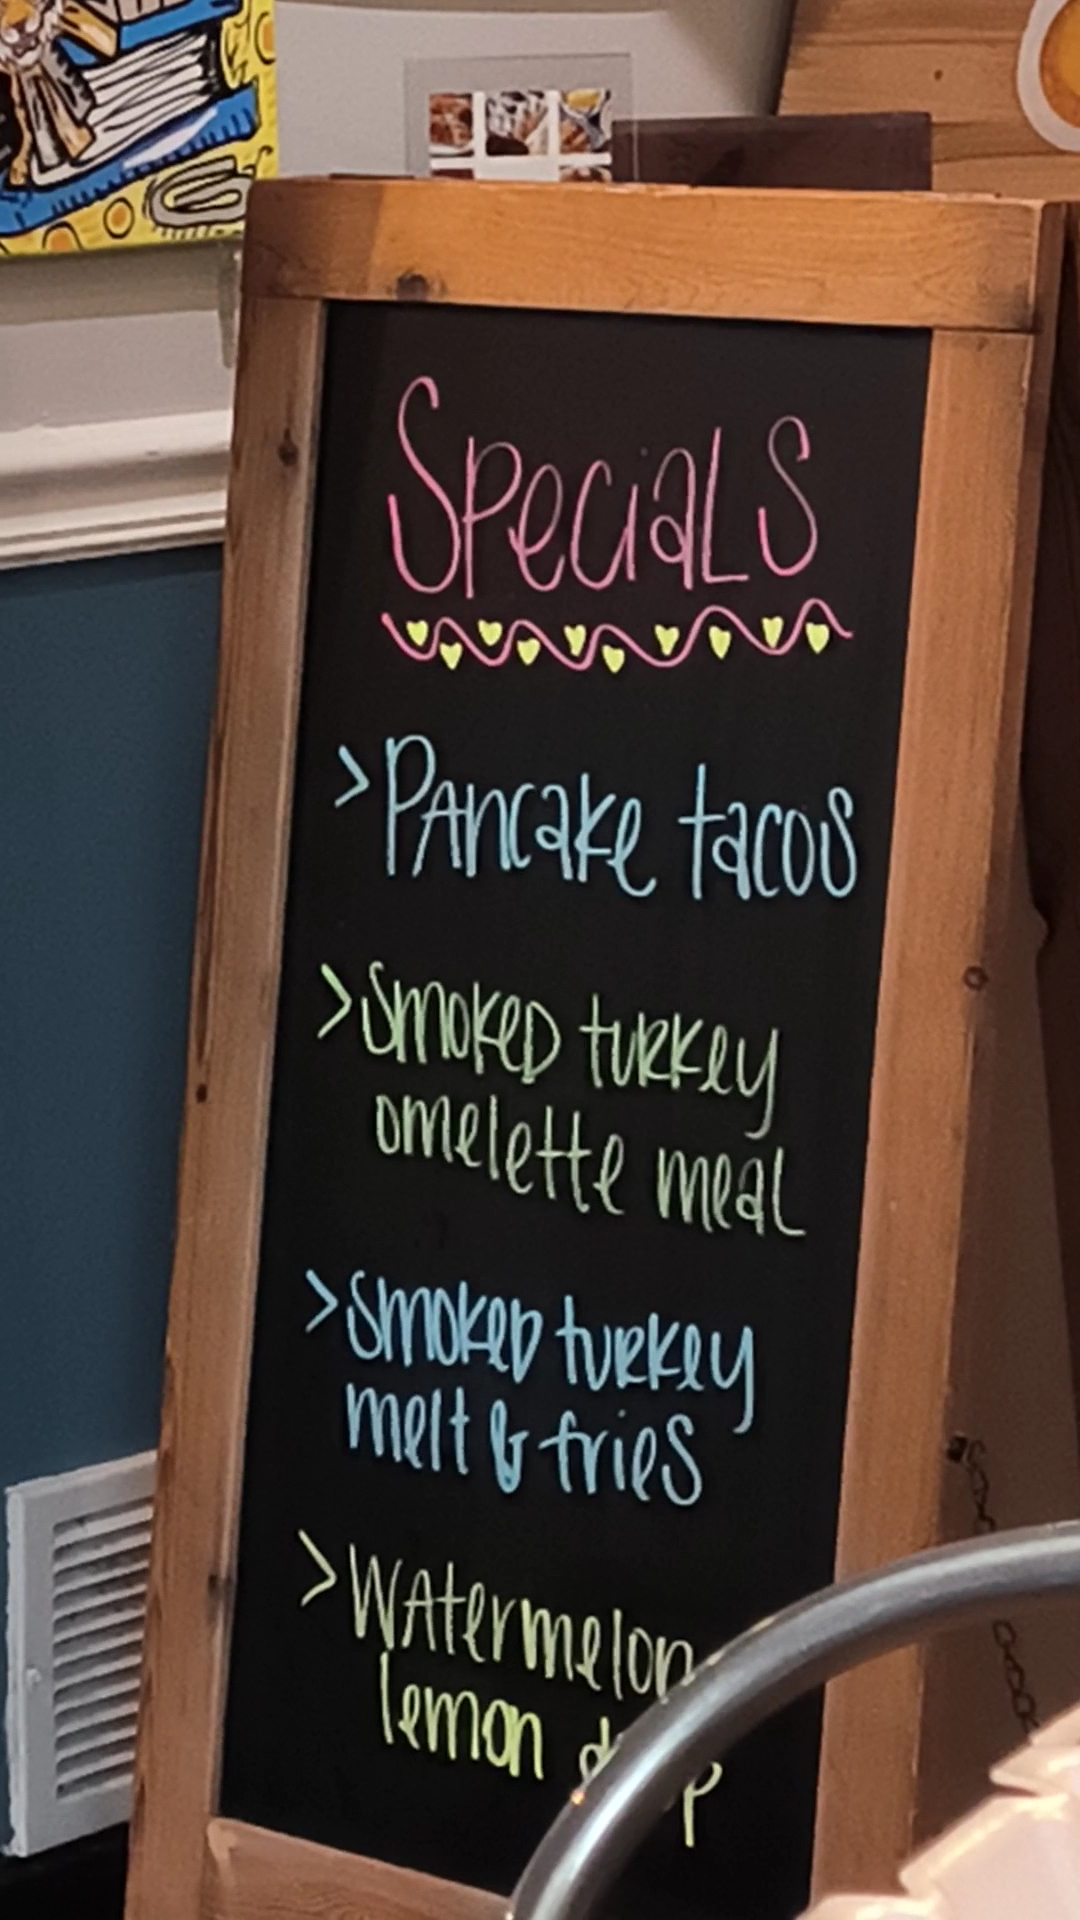 Specials
>Pancake tacos
>Smoked turkey
omelette meal
>Smoked turkey
melt & fries
>Watermelon
lemon